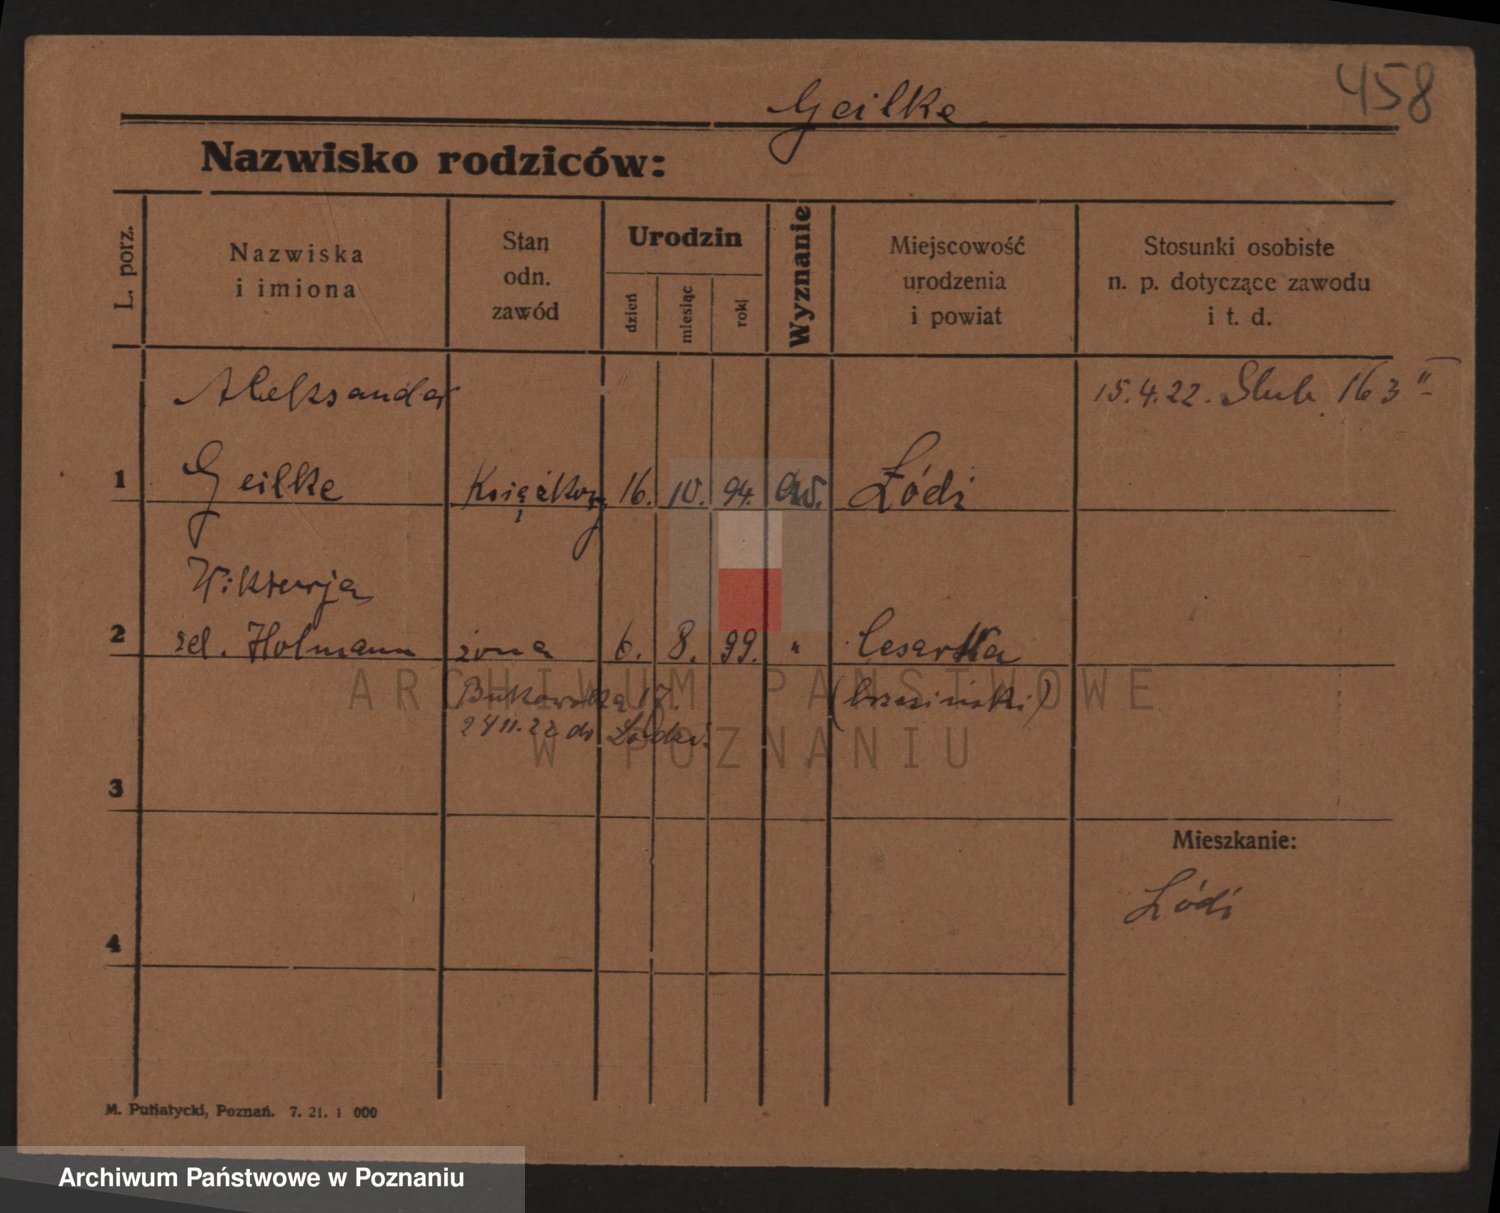 458
Geilke
Nazwisko rodziców:
L. porz.
Nazwiska
i imiona
Stan
odn.
zawód
Urodzin
dzień
miesiąc
rok
Wyznanie
Miejscowość
urodzenia
i powiat
Stosunki osobiste
n. p. dotyczące zawodu
i t. d.
Aleksander
15.4.22. Ślub 163
1 Geilke Księżkowy 16. 10. 94. Łódź
Wiktorja
2 zel. Holmann żona 6. 8. 99. " Cesarka
Bukowska 17. (brzeziński)
24 11. 22 do Łodzi.
3
Mieszkanie:
Łódź
4
M. Putiatycki, Poznań. 7. 21. 1 000
ARCHIWUM PAŃSTWOWE
W POZNANIU
Archiwum Państwowe w Poznaniu